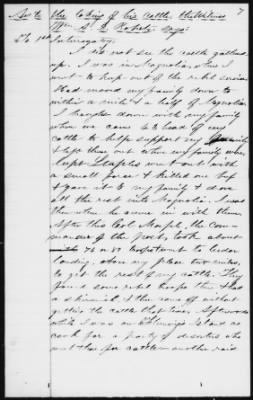 7
As to the taking of his cattle the Witness
Wm A. E. Roberts says:
To 1st Interrogatory
I did not see the cattle gathered
up. I was in Magnolia, when I
went to keep out of the rebel service
Had moved my family down to
within a mile & a half of Magnolia.
I brought down with my family
when we came to head of my
cattle to help support my family
& left these out when my family when
Capt Staples went out with
a small force & killed one beef
& gave it to my family & drove
all the rest into Magnolia. I was
there when he came in with them.
After this Col the Com
mander of the Post, took about
75 or 80 troops & went to Cedar
Landing, above my place two miles,
to get the rest of my cattle. They
found some rebel troops there & had
a skirmish & then came off without
getting the cattle that time. Afterwards
while I was on Island as
cook for a party of deserters who
went there for cattle another raid